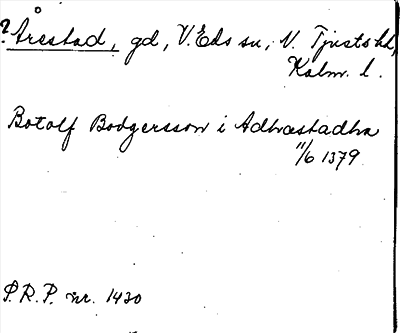 ? Årestad, gd, V. Eds sn, N. Tjusts hd,
Kalm. l.
Botolf Bodgersson i Adhrastadha
11/6 1379
S.R.P. nr. 1430